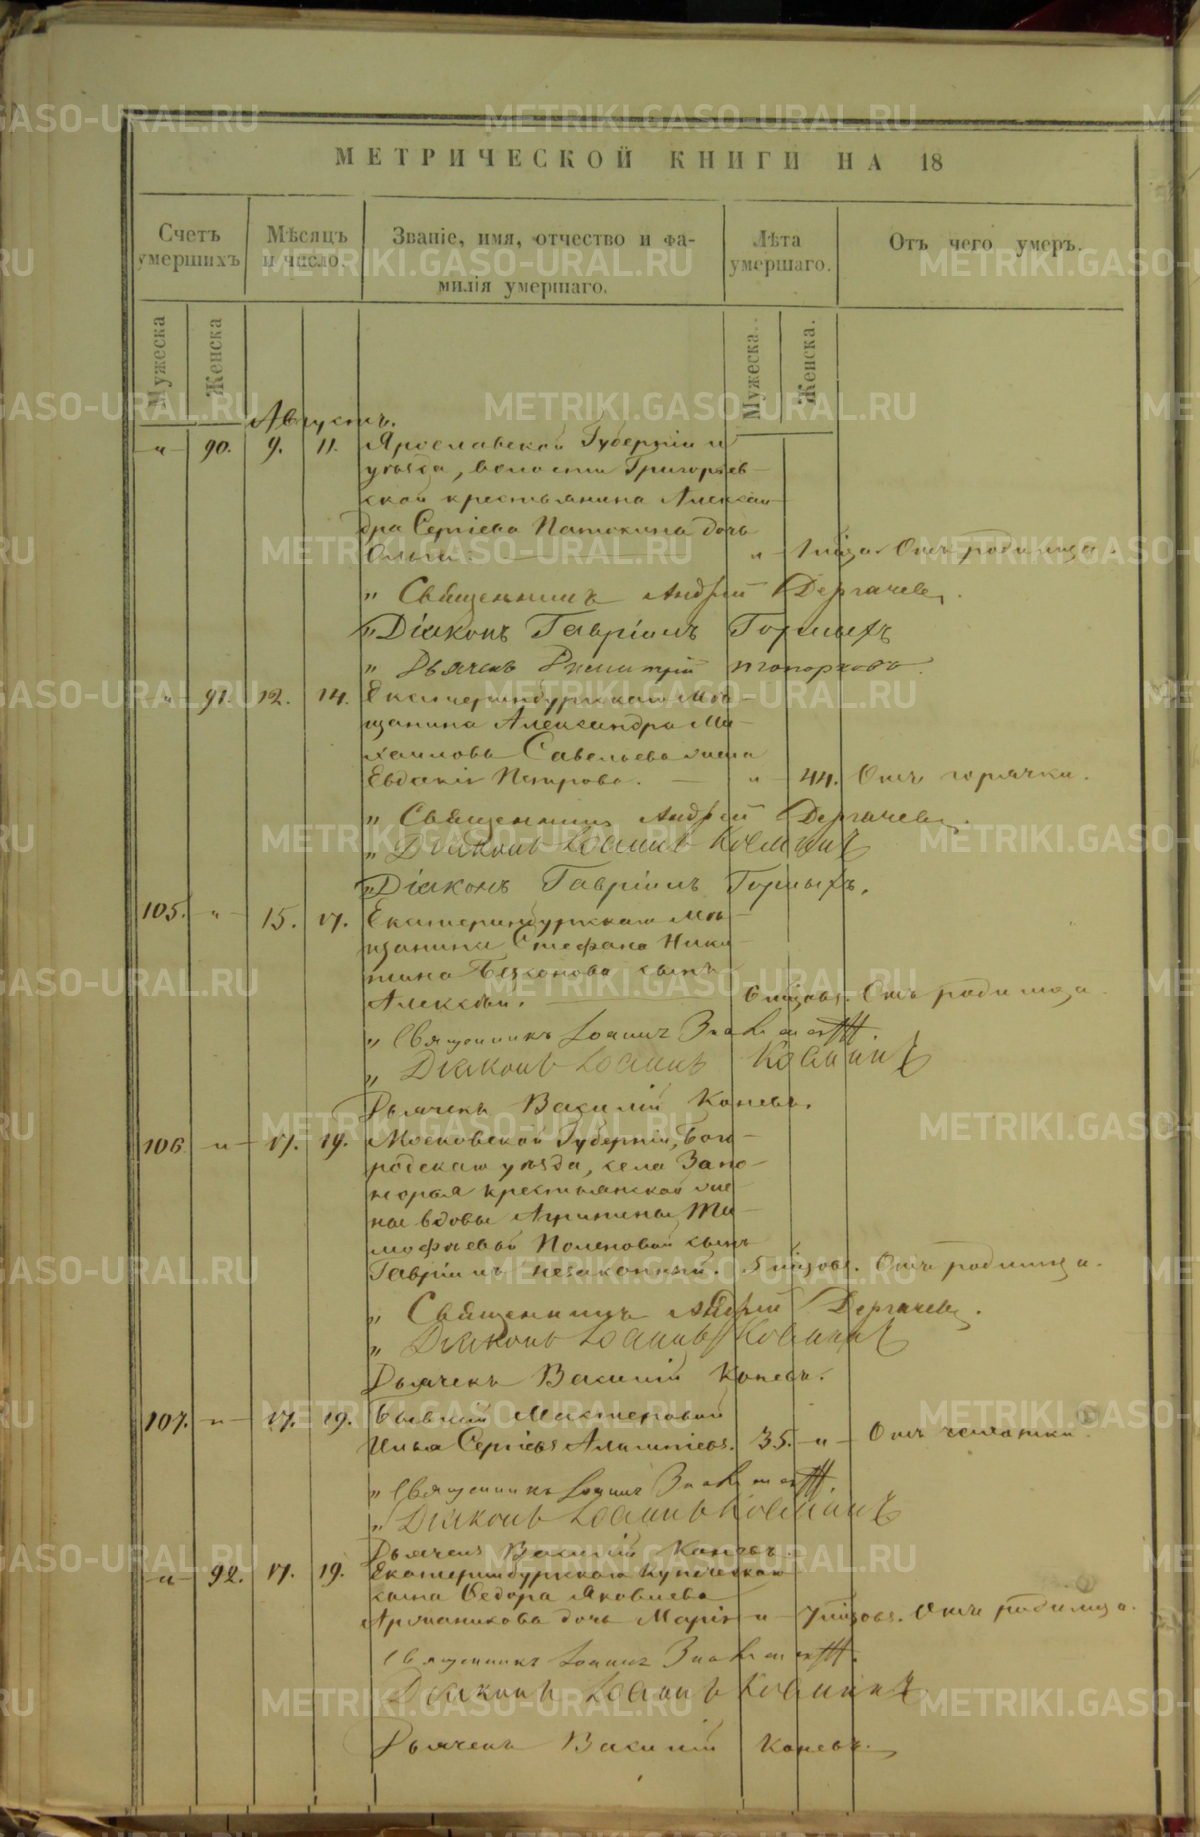 МЕТРИЧЕСКОЙ КНИГИ НА 18
Счетъ умершихъ
Мѣсяцъ и число.
Званіе, имя, отчество и фамилія умершаго.
Лѣта умершаго.
Отъ чего умеръ.
Мужеска
Женска
Мужеска.
Женска.
Августъ.
„ 90. 9. 11. Ярославской Губерніи и
уѣзда, волости Григорьев-
ской крестьянина Алексан-
дра Сергіева дочь
Ольга. „ Отъ родимца.
„ Священникъ Андрей Дергачевъ.
„ Діаконъ Гавріилъ Горныхъ
„ Дьячекъ Димитрій Топорковъ
„ 91. 12. 14. Екатеринбургскаго Мѣ-
щанина Александра Ми-
хаилова Савельева жена
Евдокія Петрова. „ 44. Отъ горячки.
„ Священникъ Андрей Дергачевъ.
„ Діаконъ Іоаннъ Косминъ
„ Діаконъ Гавріилъ Горныхъ.
105. „ 15. 17. Екатеринбургскаго Мѣ-
щанина Стефана Ники-
тина сынъ
Алексѣй. 6 мѣсяцовъ. Отъ родимца.
„ Священникъ Іоаннъ
„ Діаконъ Іоаннъ Косминъ
Дьячекъ Василій Коневъ.
106. „ 17. 19. Московской Губерніи, Бого-
родскаго уѣзда, села Запо-
норья крестьянской жё-
ны вдовы Агрипины Ти-
мофѣевой сынъ
Гавріилъ незаконный. 5 мѣсяцовъ. Отъ родимца.
„ Священникъ Андрей Дергачевъ.
„ Діаконъ Іоаннъ Косминъ
Дьячекъ Василій Коневъ.
107. „ 17. 19. Бывшій Мастеровой
Илья Сергіевъ 35. „ Отъ чахотки.
„ Священникъ Іоаннъ
„ Діаконъ Іоаннъ Косминъ
Дьячекъ Василій Коневъ.
„ 92. 17. 19. Екатеринбургскаго Купеческаго
сына Федора Яковлева
дочь Марія „ 7 мѣсяцовъ. Отъ родимца.
Священникъ Іоаннъ
Діаконъ Іоаннъ Косминъ
Дьячекъ Василій Коневъ.
METRIKI.GASO-URAL.RU